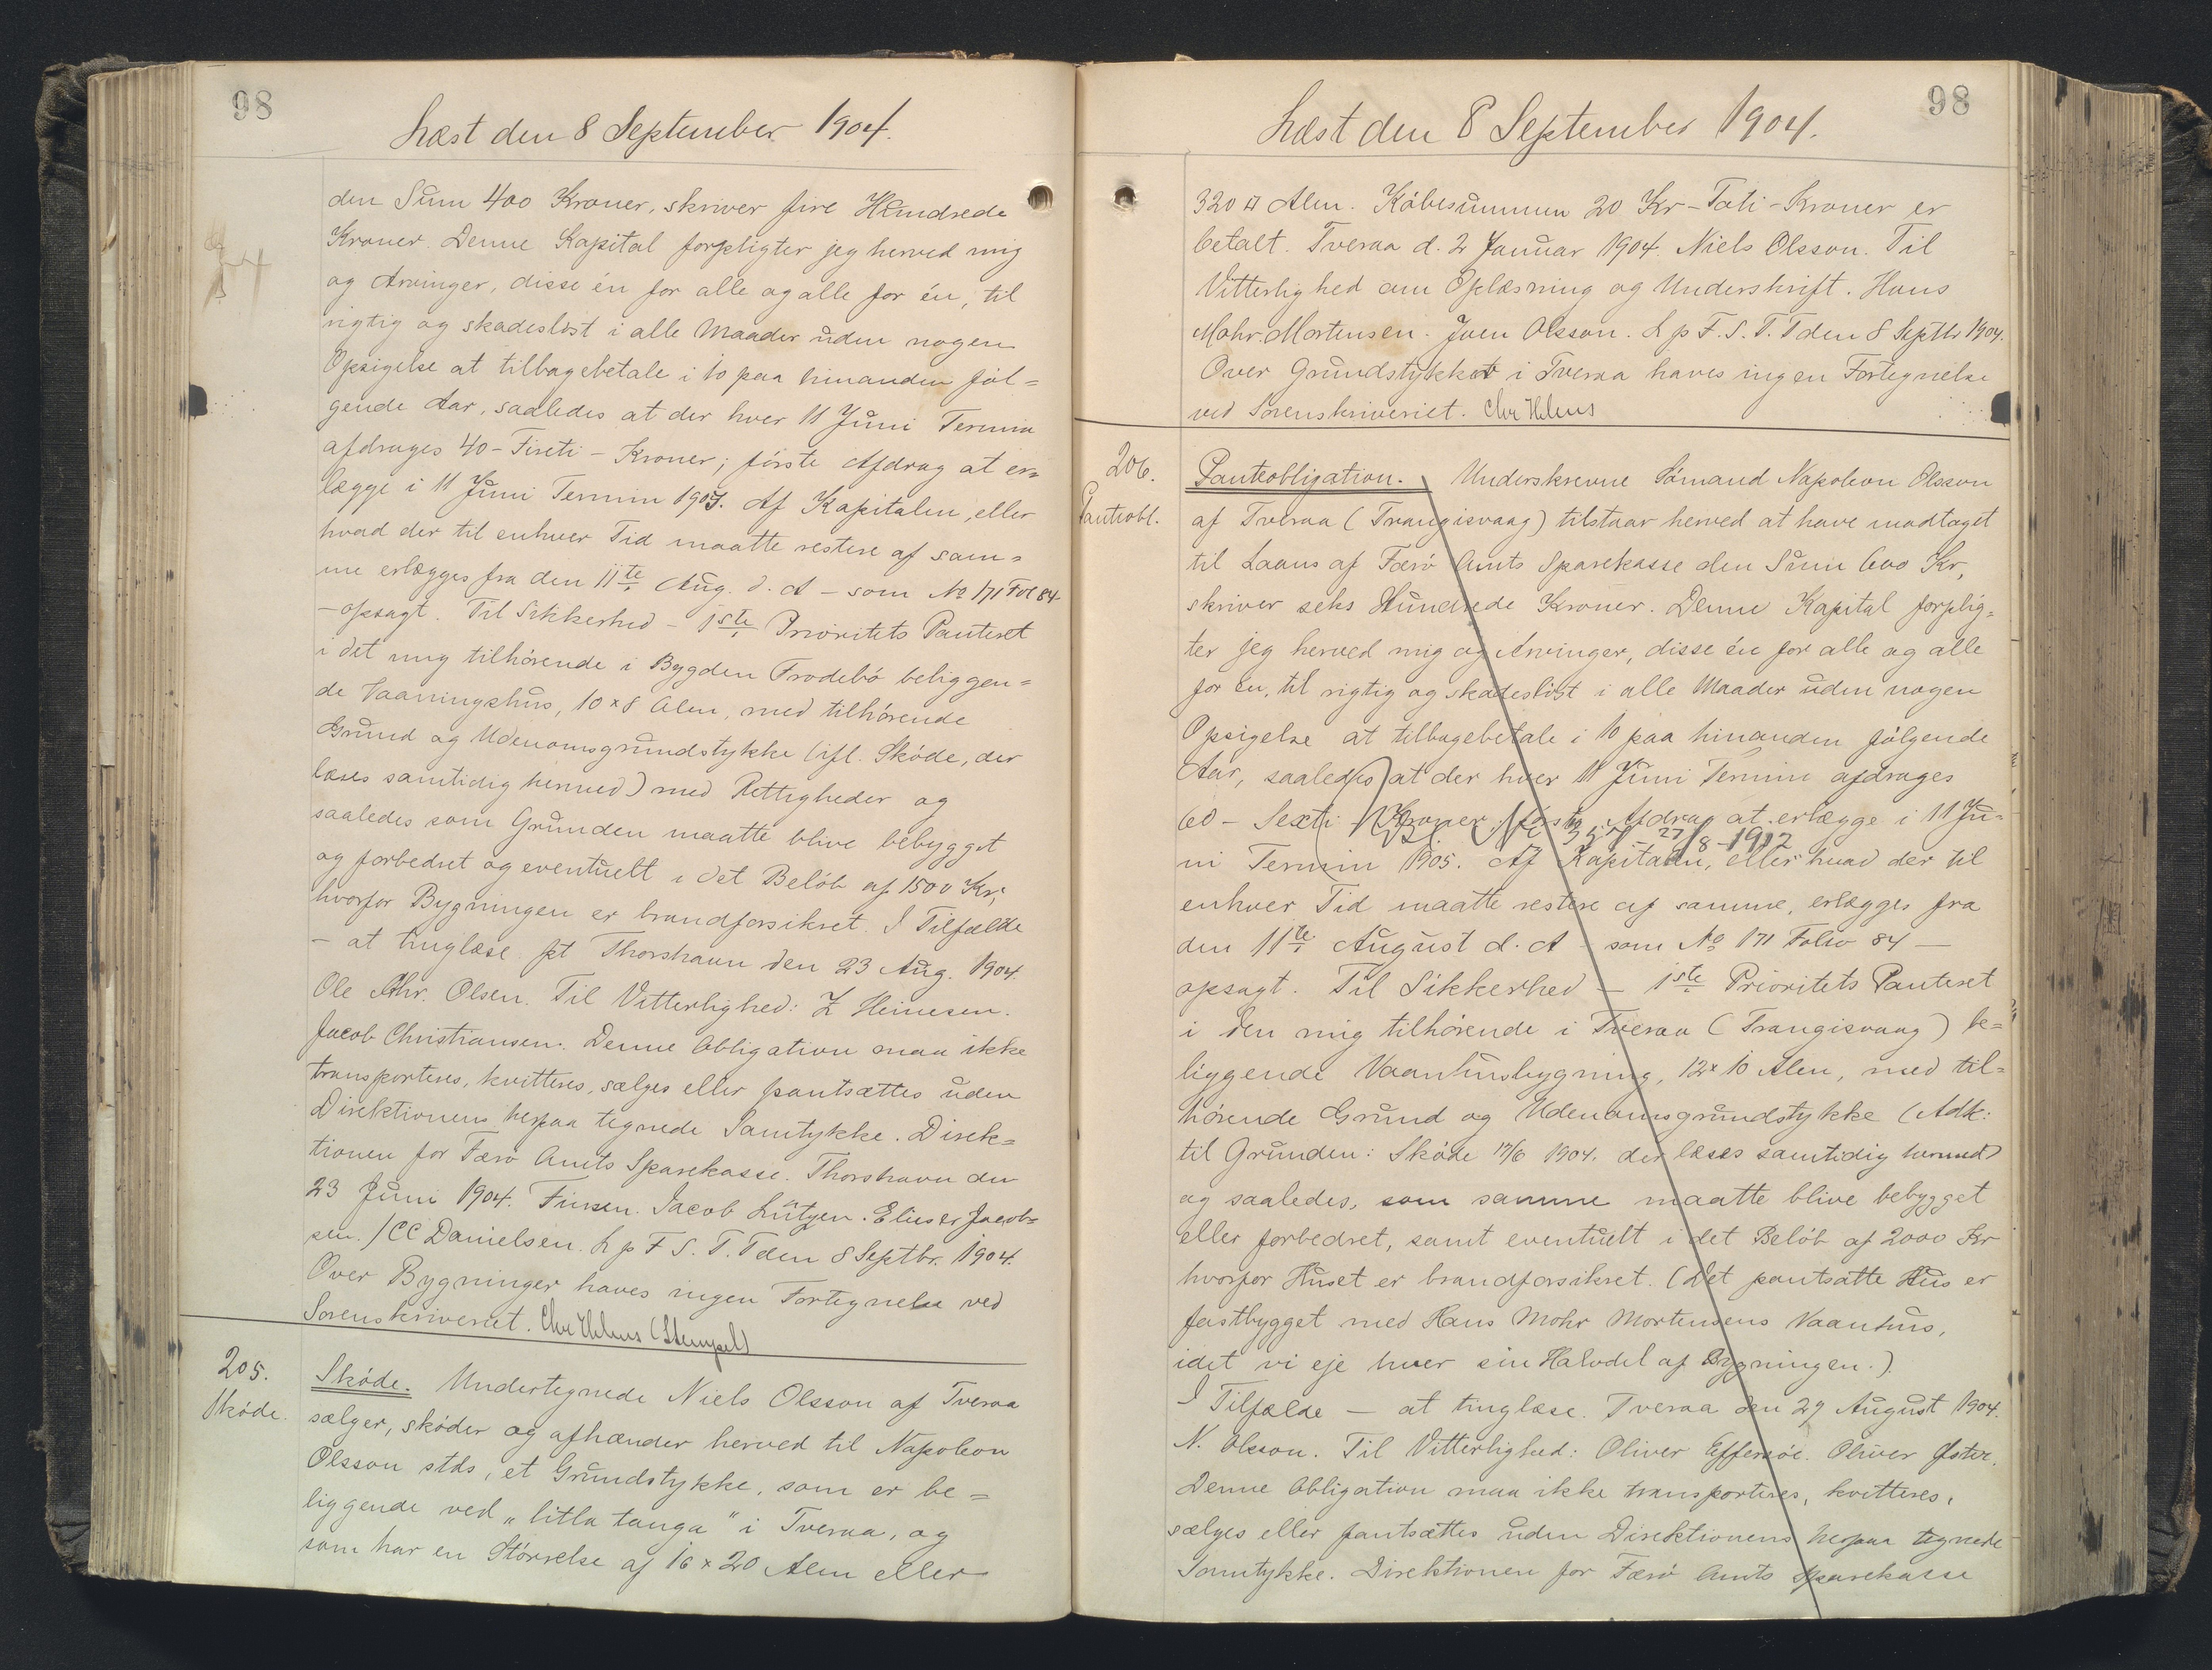 98
Læst den 8 September 1904.
den Sum 400 Kroner, skriver fire Hundrede
Kroner. Denne Kapital forpligter jeg herved mig
og Arvinger, disse én for alle og alle for én, til
rigtig og skadesløst i alle Maader uden nogen
Opsigelse at tilbagebetale i 10 paa hinanden føl=
gende Aar, saaledes at der hver 11 Juni Termin
afdrages 40 - Fireti - Kroner; første Afdrag at er=
lægge i 11 Juni Termin 1905. Af Kapitalen, eller
hvad der til enhver Tid maatte restere af sam=
me erlægges fra den 11te Aug. d. A - som No 171 Fol 84
- opsagt. Til Sikkerhed - 1ste Prioritets Panteret
i det mig tilhørende i Bygden Frodebø beliggen=
de Vaaningshus, 10 x 8 Alen, med tilhørende
Grund og Udenomsgrundstykke (ifl. Skøde, der
læses samtidig hermed) med Rettigheder og
saaledes som Grunden maatte blive bebygget
og forbedret og eventuelt i det Beløb af 1500 Kr;
hvorfor Bygningen er brandforsikret. I Tilfælde
- at tinglæse. pt Thorshavn den 23 Aug. 1904.
Ole Chr. Olsen. Til Vitterlighed: Z Heinesen.
Jacob Christiansen. Denne Obligation maa ikke
transporteres, kvitteres, sælges eller pantsættes uden
Direktionens herpaa tegnede Samtykke. Direk=
tionen for Færø Amts Sparekasse. Thorshavn den
23 Juni 1904. Finsen. Jacob Lützen. Elieser Jacob=
sen. / CC Danielsen. L p F S. T. T den 8 Septbr. 1904.
Over Bygninger haves ingen Fortegnelse ved
Sorenskriveriet. Chr Helms (Stempel)
205.
Skøde.
Skøde. Undertegnede Niels Olsson af Tveraa
sælger, skøder og afhænder herved til Napoleon
Olsson stds, et Grundstykke, som er be=
liggende ved "litla tanga" i Tveraa, og
som har en Størrelse af 16 x 20 Alen eller
98
Læst den 8 September 1904.
320 □ Alen. Købesummen 20 Kr - Toti - Kroner er
betalt. Tveraa d. 2 Januar 1904. Niels Olsson. Til
Vitterlighed om Oplæsning og Underskrift. Hans
Mohr Mortensen. Joen Olsson. L p F. S. T. T den 8 Septbr 1904.
Over Grundstykket i Tveraa haves ingen Fortegnelse
ved Sorenskriveriet. Chr Helms
206.
Panteobl.
Panteobligation. Underskrevne Sømand Napoleon Olsson
af Tveraa (Trangisvaag) tilstaar herved at have modtaget
til Laans af Færø Amts Sparekasse den Sum 600 Kr,
skriver seks Hundrede Kroner. Denne Kapital forplig=
ter jeg herved mig og Arvinger, disse én for alle og alle
for én, til rigtig og skadesløst i alle Maader uden nogen
Opsigelse at tilbagebetale i 10 paa hinanden følgende
Aar, saaledes at der hver 11 Juni Termin afdrages
60 - Sexti - Kroner, første Afdrag at erlægge i 11 Ju=
27/8 - 1912
ni Termin 1905. Af Kapitalen, eller hvad der til
enhver Tid maatte restere af samme, erlægges fra
den 11te August d. A - som No 171 Folio 84 -
opsagt. Til Sikkerhed - 1ste Prioritets Panteret
i den mig tilhørende i Tveraa (Trangisvaag) be=
liggende Vaanhusbygning, 12 x 10 Alen, med til=
hørende Grund og Udenomsgrundstykke (Adk:
til Grunden: Skøde 17/6 1904. der læses samtidig hermed)
og saaledes, som samme maatte blive bebygget
eller forbedret, samt eventuelt i det Beløb af 2000 Kr
hvorfor Huset er brandforsikret. (Det pantsatte Hus er
fastbygget med Hans Mohr Mortensens Vaanhus,
idet vi eje hver sin Halvdel af Bygningen.)
I Tilfælde - at tinglæse. Tveraa den 29 August 1904.
N. Olsson. Til Vitterlighed: Oliver Effersøe. Oliver Øster.
Denne Obligation maa ikke transporteres, kvitteres,
sælges eller pantsættes uden Direktionens herpaa tegnede
Samtykke. Direktionen for Færø Amts Sparekasse